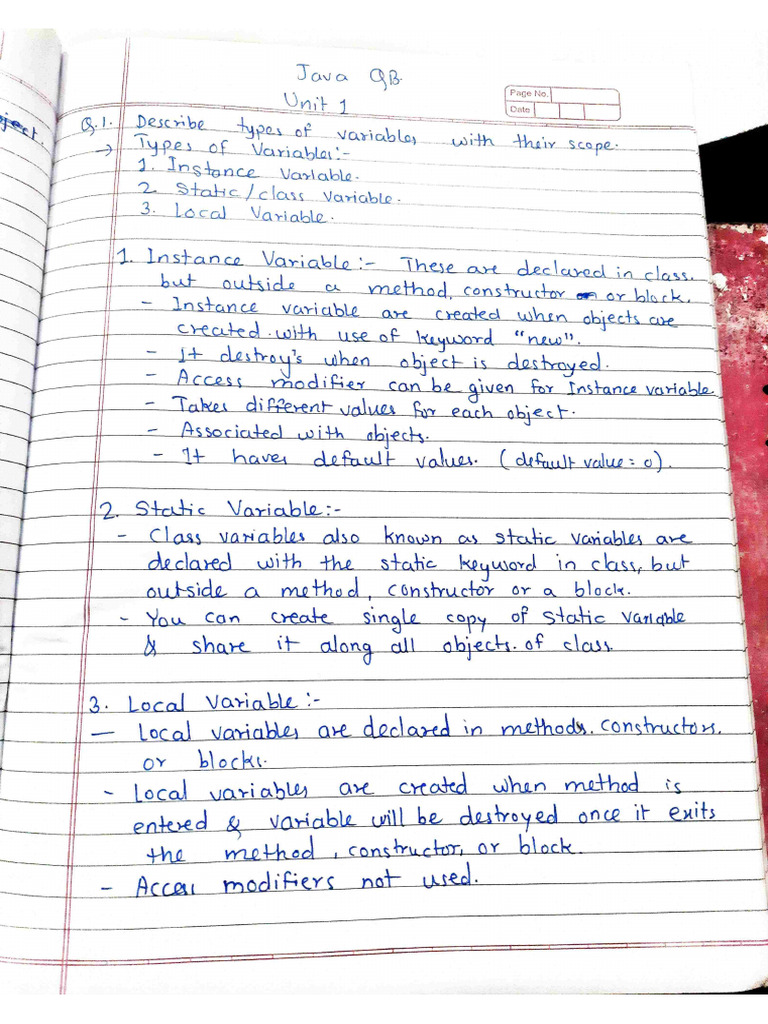 Java QB.
Unit 1
Page No.
Date
ject.
Q.1. Describe types of variables with their scope.
→ Types of Variables:-
1. Instance Variable.
2. Static/class Variable.
3. Local Variable.
1. Instance Variable:- These are declared in class.
but outside a method, constructor or block.
- Instance variable are created when objects are
created with use of keyword "new".
- It destroy's when object is destroyed.
- Access modifier can be given for Instance variable.
- Takes different values for each object.
- Associated with objects.
- It haves default values. (default value = 0).
2. Static Variable:-
- Class variables also known as static variables are
declared with the static keyword in class, but
outside a method, constructor or a block.
- You can create single copy of static variable
& share it along all objects. of class.
3. Local Variable:-
- Local variables are declared in methods. constructors.
or blocks.
- Local variables are created when method is
entered & variable will be destroyed once it exits
the method, constructor, or block.
- Access modifiers not used.